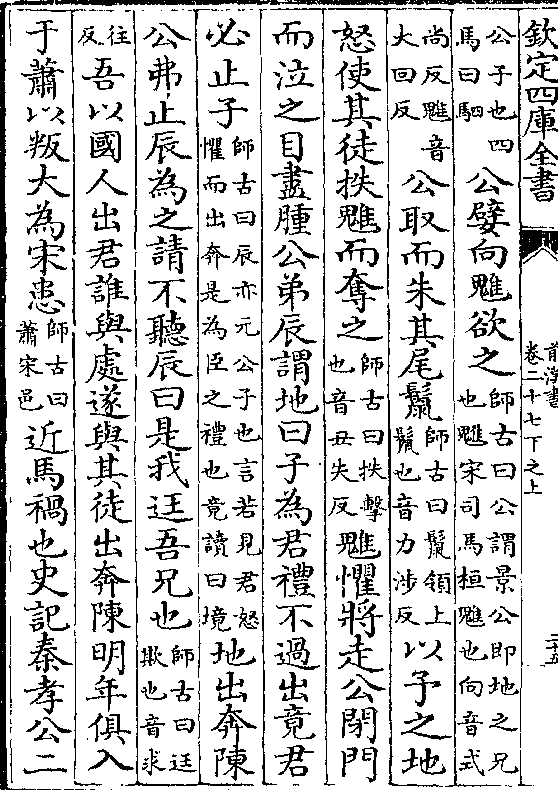 欽定四庫全書
前漢書
卷二十七下之上
公子也四馬曰駟公嬖向魋欲之師古曰公謂景公即地之兄也魋宋司馬桓魋也向音式
尚反魋音大回反公取而朱其尾鬛師古曰鬛領上鬛也音力涉反以予之地
怒使其徒抶魋而奪之師古曰抶擊也音丑失反魋懼將走公閉門
而泣之目盡腫公弟辰謂地曰子為君禮不過出竟君
必止子師古曰辰亦元公子也言若見君怒懼而出奔是為臣之禮也竟讀曰境地出奔陳
公弗止辰為之請不聽辰曰是我迋吾兄也師古曰迋欺也音求
往反吾以國人出君誰與處遂與其徒出奔陳明年俱入
于蕭以叛大為宋患師古曰蕭宋邑近馬禍也史記秦孝公二